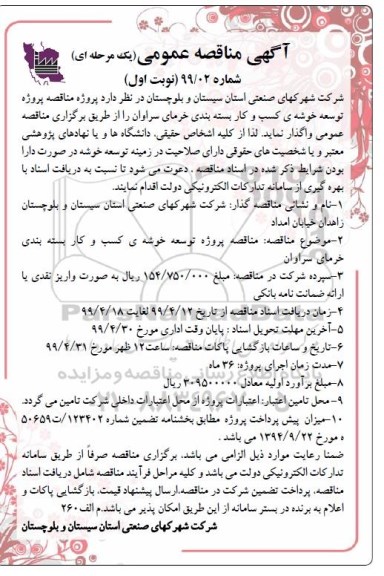 آگهی مناقصه عمومی (یک مرحله ای)
شماره ۹۹/۰۲ (نوبت اول)
شرکت شهرکهای صنعتی استان سیستان و بلوچستان در نظر دارد پروژه مناقصه پروژه
توسعه خوشه ی کسب و کار بسته بندی خرمای سراوان را از طریق برگزاری مناقصه
عمومی واگذار نماید. لذا از کلیه اشخاص حقیقی، دانشگاه ها و یا نهادهای پژوهشی
معتبر و یا شخصیت های حقوقی دارای صلاحیت در زمینه توسعه خوشه در صورت دارا
بودن شرایط ذکر شده در اسناد مناقصه ، دعوت می شود تا نسبت به دریافت اسناد با
بهره گیری از سامانه تدارکات الکترونیکی دولت اقدام نمایند.
۱-نام و نشانی مناقصه گذار: شرکت شهرکهای صنعتی استان سیستان و بلوچستان
زاهدان خیابان امداد
۲-موضوع مناقصه: مناقصه پروژه توسعه خوشه ی کسب و کار بسته بندی
خرمای سراوان
۳-سپرده شرکت در مناقصه: مبلغ ۱۵۴/۷۵۰/۰۰۰ ریال به صورت واریز نقدی یا
ارائه ضمانت نامه بانکی
۴-زمان دریافت اسناد مناقصه از تاریخ ۹۹/۴/۱۲ لغایت ۹۹/۴/۱۸
۵-آخرین مهلت تحویل اسناد : پایان وقت اداری مورخ ۹۹/۴/۳۰
۶-تاریخ و ساعات بازگشایی پاکات مناقصه: ساعت ۱۲ ظهر مورخ ۹۹/۴/۳۱
۷-مدت زمان اجرای پروژه: ۳۶ ماه
۸-مبلغ برآورد اولیه معادل ۳۰۹۵۰۰۰۰۰۰ ریال
۹- محل تامین اعتبار: اعتبارات پروژه از محل اعتبارات داخلی شرکت تامین می گردد.
۱۰-میزان پیش پرداخت پروژه مطابق بخشنامه تضمین شماره ۱۲۳۴۰۲/ت۵۰۶۵۹
ه مورخ ۱۳۹۴/۹/۲۲ می باشد .
ضمنا رعایت موارد ذیل الزامی می باشد. برگزاری مناقصه صرفاً از طریق سامانه
تدارکات الکترونیکی دولت می باشد و کلیه مراحل فرآیند مناقصه شامل دریافت اسناد
مناقصه، پرداخت تضمین شرکت در مناقصه،ارسال پیشنهاد قیمت، بازگشایی پاکات و
اعلام به برنده در بستر سامانه از این طریق امکان پذیر می باشد.م الف۲۶۰
شرکت شهرکهای صنعتی استان سیستان و بلوچستان